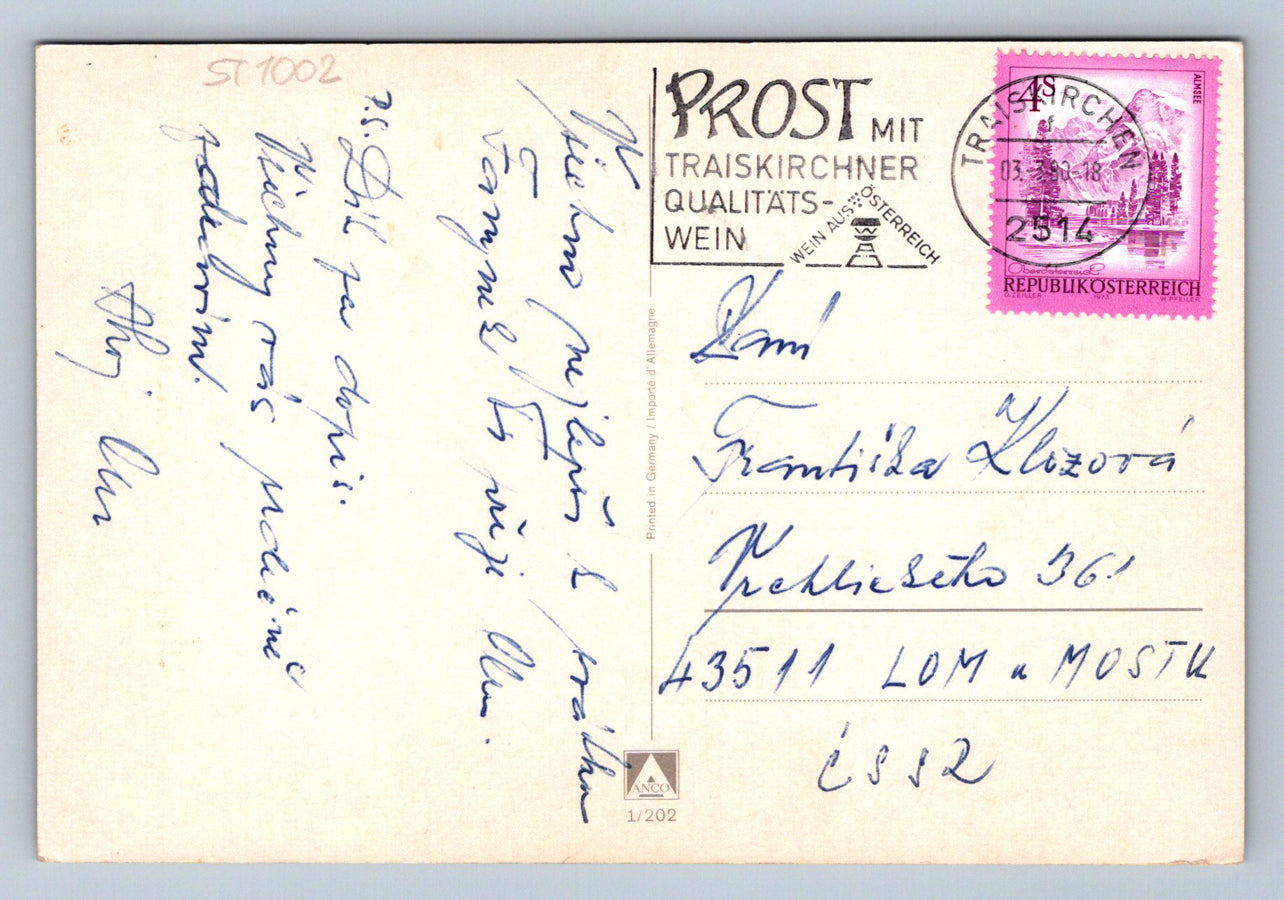 ST 1002
Všechno nejlepší k svátku
Ti přeje
P.S. Dík za dopis.
Všichni vás
Ahoj.
PROST MIT
TRAISKIRCHNER
QUALITÄTS-
WEIN
WEIN AUS ÖSTERREICH
W
TRAISKIRCHEN
f
03.-3.80-18
2514
4S
ALMSEE
Oberösterreich
REPUBLIK ÖSTERREICH
O. ZEILLER 1973 W. PFEILER
Printed in Germany / Importé d'Allemagne
Paní
Františka Klozová
Vrchlického 361
43511 LOM u MOSTU
ČSSR
ANCO
1/202